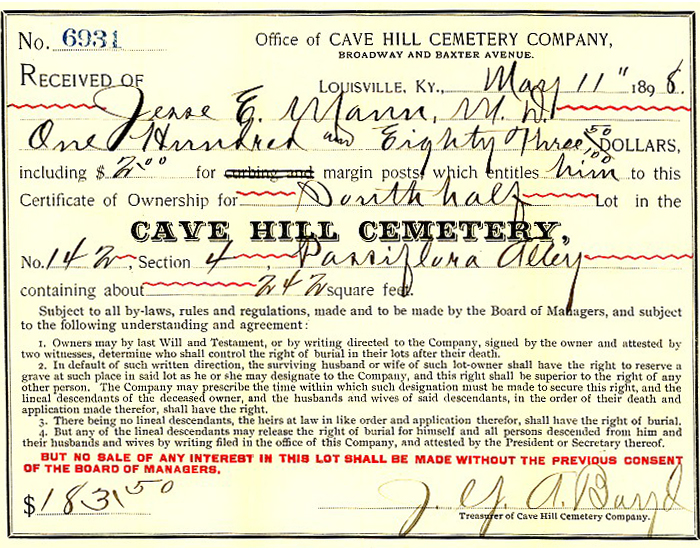 No. 6931 Office of CAVE HILL CEMETERY COMPANY,
BROADWAY AND BAXTER AVENUE.
RECEIVED OF LOUISVILLE, KY., May 11" 1898.
Jesse E. Mann, M.D.
One Hundred and Eighty Three 50/100 DOLLARS,
including $ 2.00 for curbing and margin posts, which entitles him to this
Certificate of Ownership for South half Lot in the
CAVE HILL CEMETERY,
No. 142, Section 4, Passiflora Alley
containing about 242 square feet.
Subject to all by-laws, rules and regulations, made and to be made by the Board of Managers, and subject
to the following understanding and agreement:
1. Owners may by last Will and Testament, or by writing directed to the Company, signed by the owner and attested by
two witnesses, determine who shall control the right of burial in their lots after their death.
2. In default of such written direction, the surviving husband or wife of such lot-owner shall have the right to reserve a
grave at such place in said lot as he or she may designate to the Company, and this right shall be superior to the right of any
other person. The Company may prescribe the time within which such designation must be made to secure this right, and the
lineal descendants of the deceased owner, and the husbands and wives of said descendants, in the order of their death and
application made therefor, shall have the right.
3. There being no lineal descendants, the heirs at law in like order and application therefor, shall have the right of burial.
4. But any of the lineal descendants may release the right of burial for himself and all persons descended from him and
their husbands and wives by writing filed in the office of this Company, and attested by the President or Secretary thereof.
BUT NO SALE OF ANY INTEREST IN THIS LOT SHALL BE MADE WITHOUT THE PREVIOUS CONSENT
OF THE BOARD OF MANAGERS.
$ 183.50 J. G. A. Boyd
Treasurer of Cave Hill Cemetery Company.